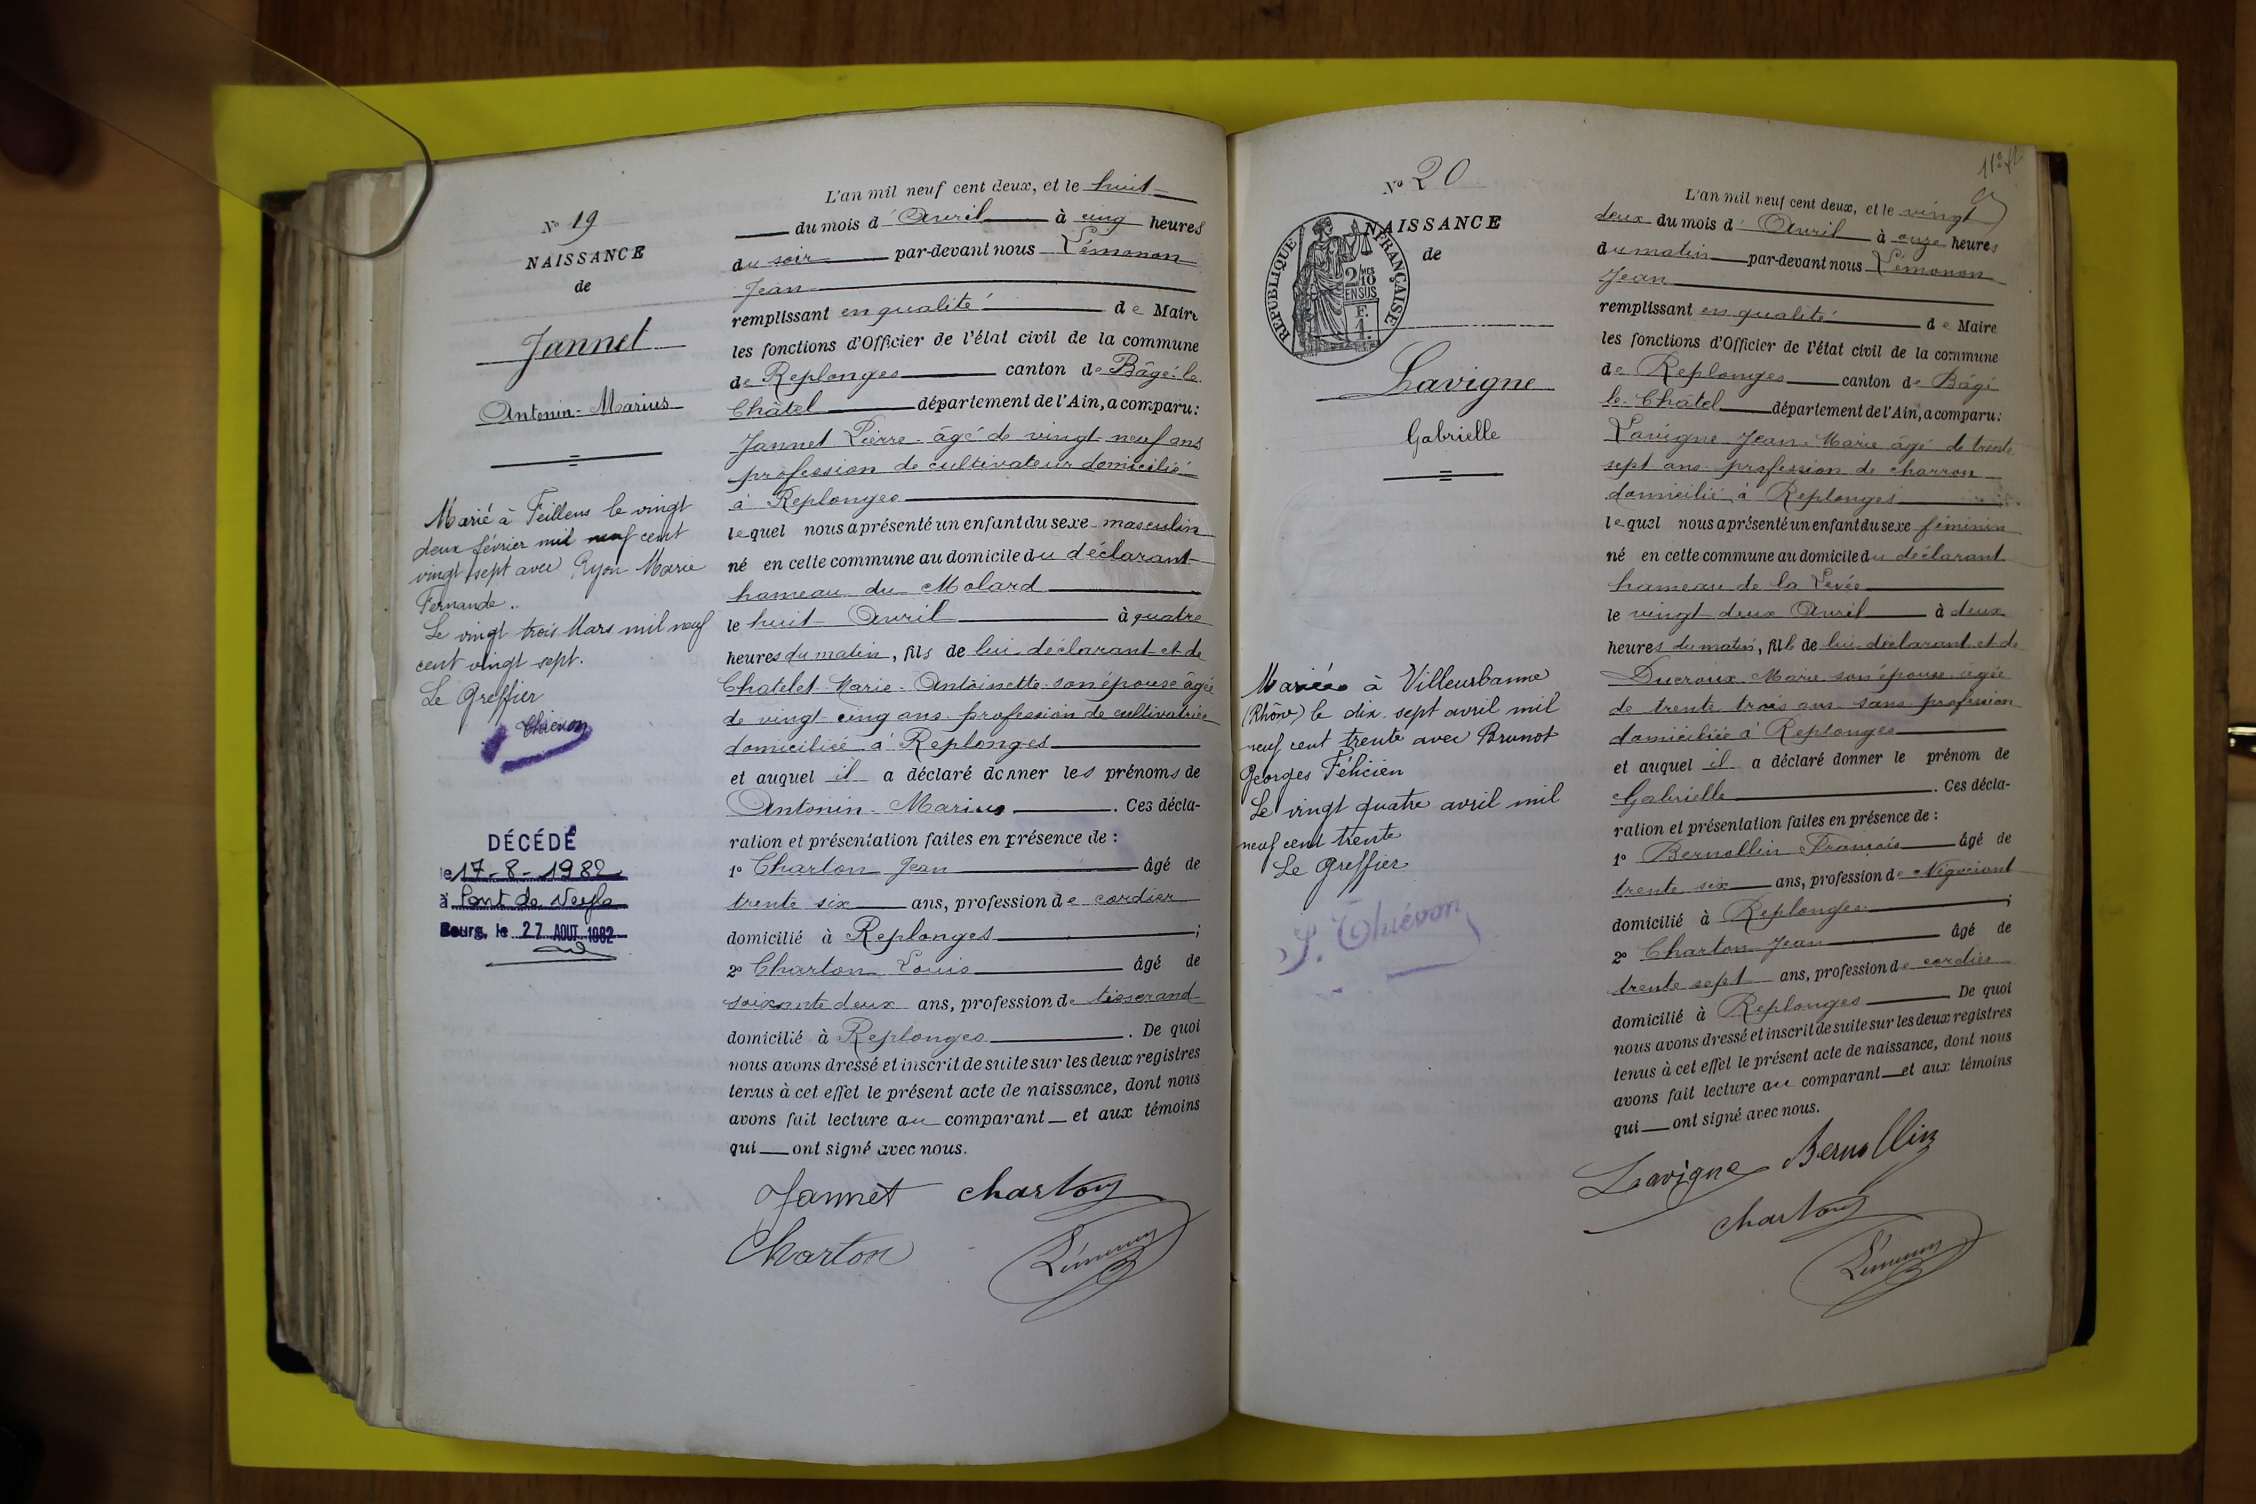 N° 19
NAISSANCE
de
Jannet
Antonin-Marius
Marié à Feillens le vingt
deux février mil neuf cent
vingt sept avec Ryon Marie
Fernande.
Le vingt trois Mars mil neuf
cent vingt sept.
Le Greffier
Thiévon
DÉCÉDÉ
le 17-8-1982
à Pont de Veyle
Bourg, le 27 AOUT 1982
L'an mil neuf cent deux, et le huit
du mois d'Avril à cinq heures
du soir par-devant nous Lémonon
Jean
remplissant en qualité de Maire
les fonctions d'Officier de l'état civil de la commune
de Replonges canton de Bâgé-le
Châtel département de l'Ain, a comparu:
Jannet Pierre âgé de vingt-neuf ans
profession de cultivateur domicilié
à Replonges
lequel nous a présenté un enfant du sexe masculin
né en cette commune au domicile du déclarant
hameau du Molard
le huit Avril à quatre
heures du matin, fils de lui déclarant et de
Chatelet Marie-Antoinette son épouse âgée
de vingt cinq ans profession de cultivatrice
domiciliée à Replonges
et auquel il a déclaré donner les prénoms de
Antonin-Marius. Ces décla-
ration et présentation faites en présence de :
1° Charton Jean âgé de
trente six ans, profession de cordier
domicilié à Replonges ;
2° Charton Louis âgé de
soixante deux ans, profession de tisserand
domicilié à Replonges. De quoi
nous avons dressé et inscrit de suite sur les deux registres
tenus à cet effet le présent acte de naissance, dont nous
avons fait lecture au comparant et aux témoins
qui ont signé avec nous.
Jannet Charton
Charton Lémonon
N° 20
NAISSANCE
de
RÉPUBLIQUE FRANÇAISE
2/10 MES
EN SUS
F.
1.
Lavigne
Gabrielle
Mariée à Villeurbanne
(Rhône) le dix sept avril mil
neuf cent trente avec Brunot
Georges Félicien
Le vingt quatre avril mil
neuf cent trente
Le Greffier
J. Thiévon
L'an mil neuf cent deux, et le vingt
deux du mois d'Avril à onze heures
du matin par-devant nous Lémonon
Jean
remplissant en qualité de Maire
les fonctions d'Officier de l'état civil de la commune
de Replonges canton de Bâgé
le Châtel département de l'Ain, a comparu:
Lavigne Jean-Marie âgé de trente
sept ans profession de charron
domicilié à Replonges
lequel nous a présenté un enfant du sexe féminin
né en cette commune au domicile du déclarant
hameau de la Levée
le vingt deux Avril à deux
heures du matin, fille de lui déclarant et de
Ducroux Marie son épouse âgée
de trente trois ans sans profession
domiciliée à Replonges
et auquel il a déclaré donner le prénom de
Gabrielle. Ces décla-
ration et présentation faites en présence de :
1° Bernollin François âgé de
trente six ans, profession de Négociant
domicilié à Replonges ;
2° Charton Jean âgé de
trente sept ans, profession de cordier
domicilié à Replonges De quoi
nous avons dressé et inscrit de suite sur les deux registres
tenus à cet effet le présent acte de naissance, dont nous
avons fait lecture au comparant et aux témoins
qui ont signé avec nous.
Lavigne Bernollin
Charton
Lémonon